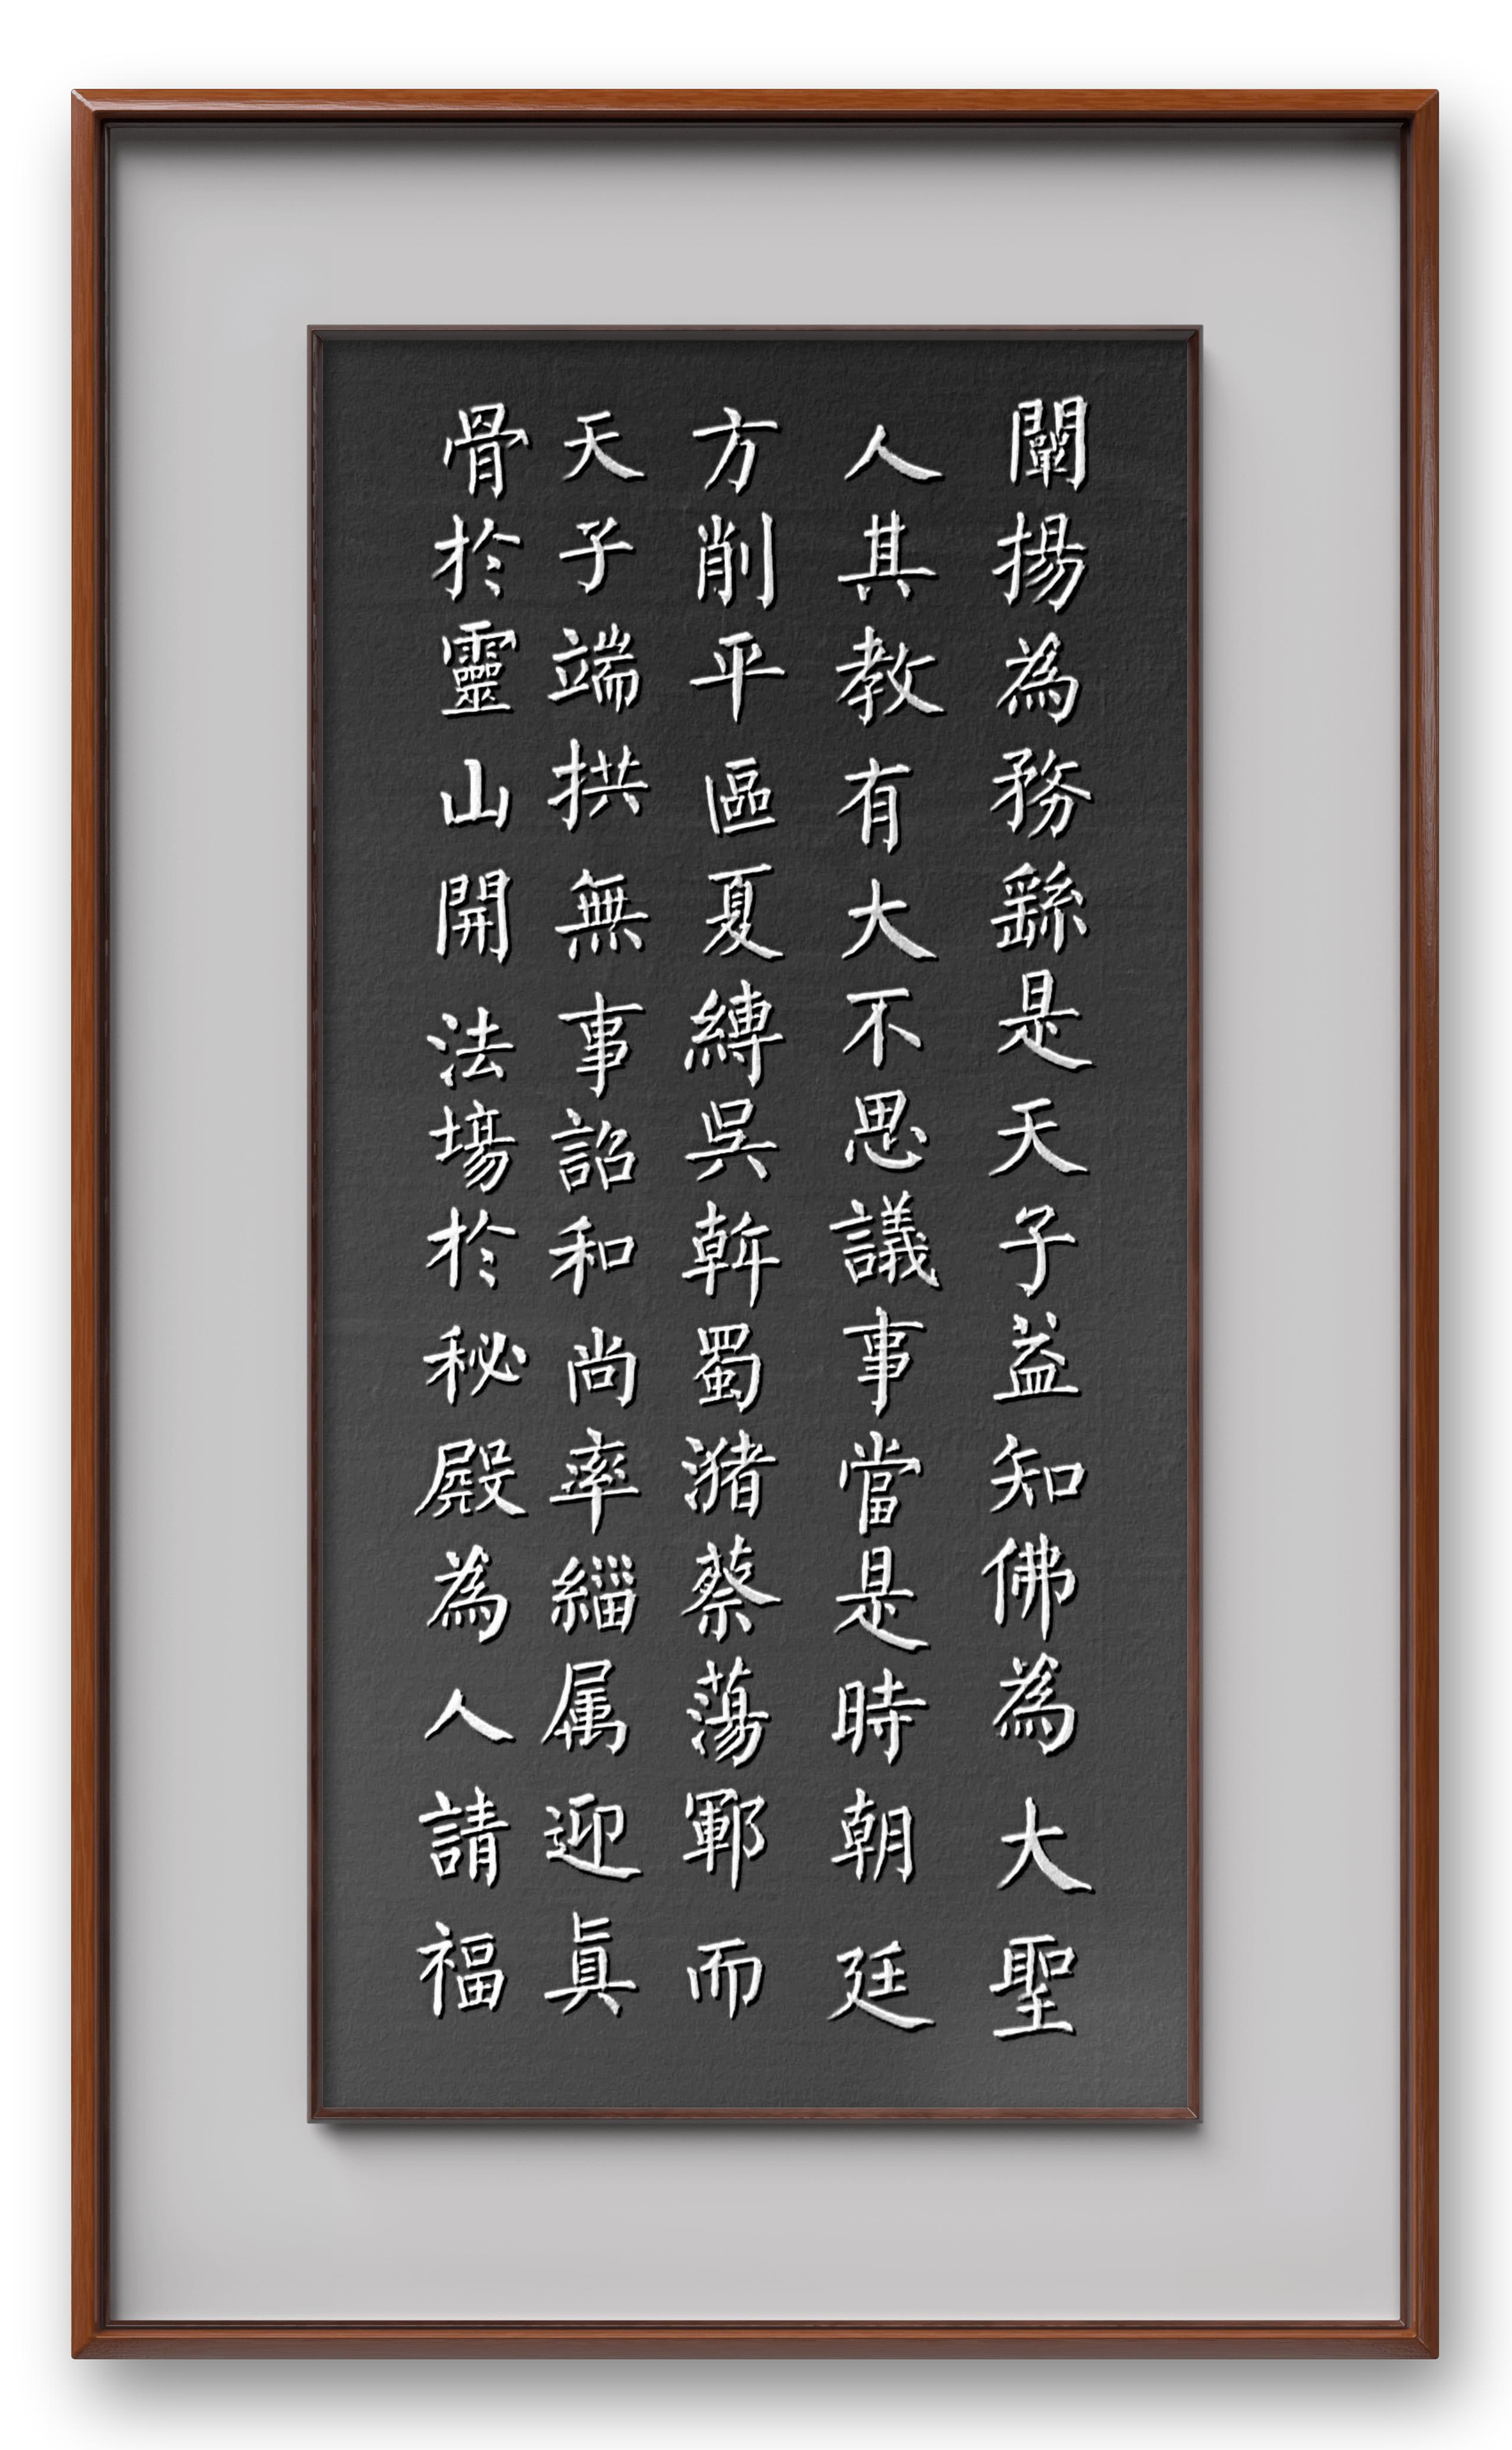 闡揚為務繇是天子益知佛為大聖
人其教有大不思議事當是時朝廷
方削平區夏縛吳斡蜀瀦蔡蕩鄆而
天子端拱無事詔和尚率緇属迎眞
骨於靈山開法場於秘殿為人請福